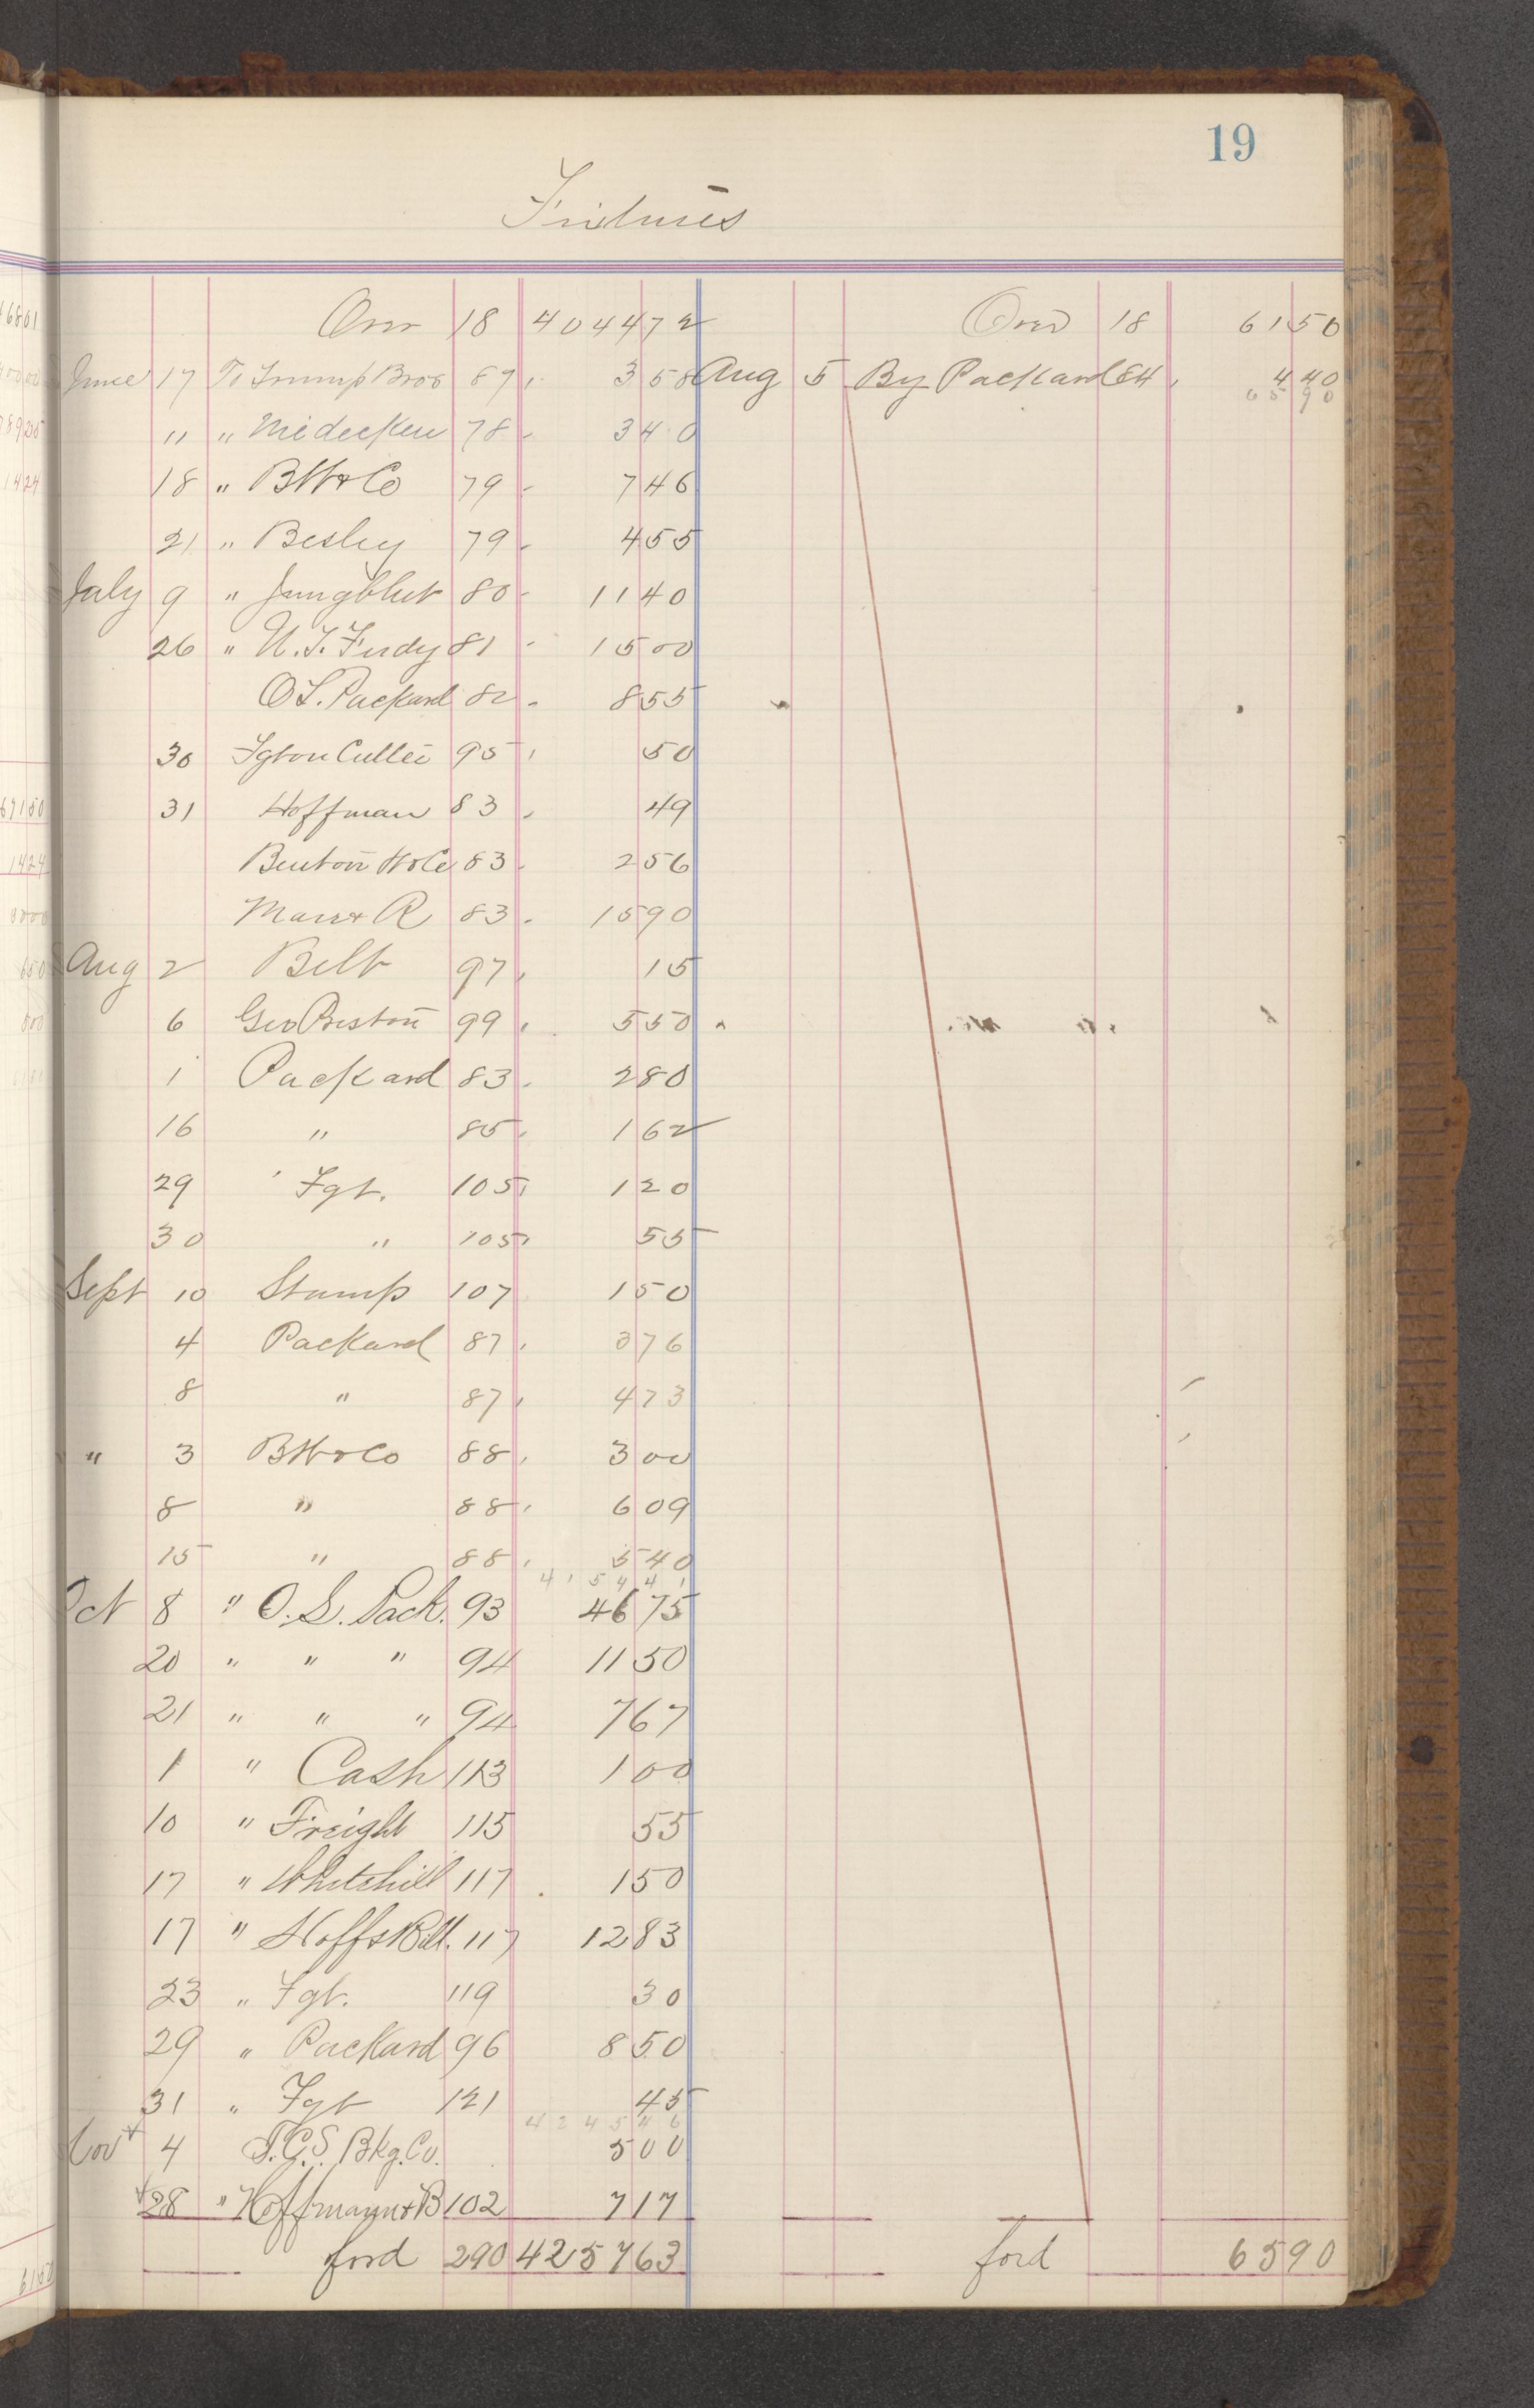 19
Fixtures
Over 18 4044 72 Over 18 61 50
June 17 To Trump Bros 87 3 58 Aug 5 By Packard 84 4 40
65 90
" " Miedecken 78 3 40
18 " BH&Co 79 7 46
21 " Besley 79 4 55
July 9 " Jungblut 80 11 40
26 " 81 15 00
O.L. Packard 82 8 55
30 Fgt on 95 50
31 Hoffman 83 49
Benton H&Co 83 2 56
Marr & R 83 15 90
Aug 2 Belt 97 15
6 Geo Preston 99 5 50
1 Packard 83 2 80
16 " 85 1 62
29 Fgt. 105 1 20
30 " 105 55
Sept 10 Stump 107 1 50
4 Packard 87 3 76
8 " 87 4 73
" 3 BH&Co 88 3 00
8 " 88 6 09
15 " 88 5 40
4154 41
Oct 8 " O.L. Pack. 93 46 75
20 " " " 94 11 50
21 " " " 94 7 67
1 " Cash 113 1 00
10 " Freight 115 55
17 " Whitehill 117 1 50
17 " Hoffs Bill. 117 12 83
23 " Fgt. 119 30
29 " Packard 96 8 50
31 " Fgt 121 45
4245 46
Nov 4 Bkg. Co. 5 00
28 " Hoffmann & B 102 7 17
ford 290 4257 63 ford 65 90